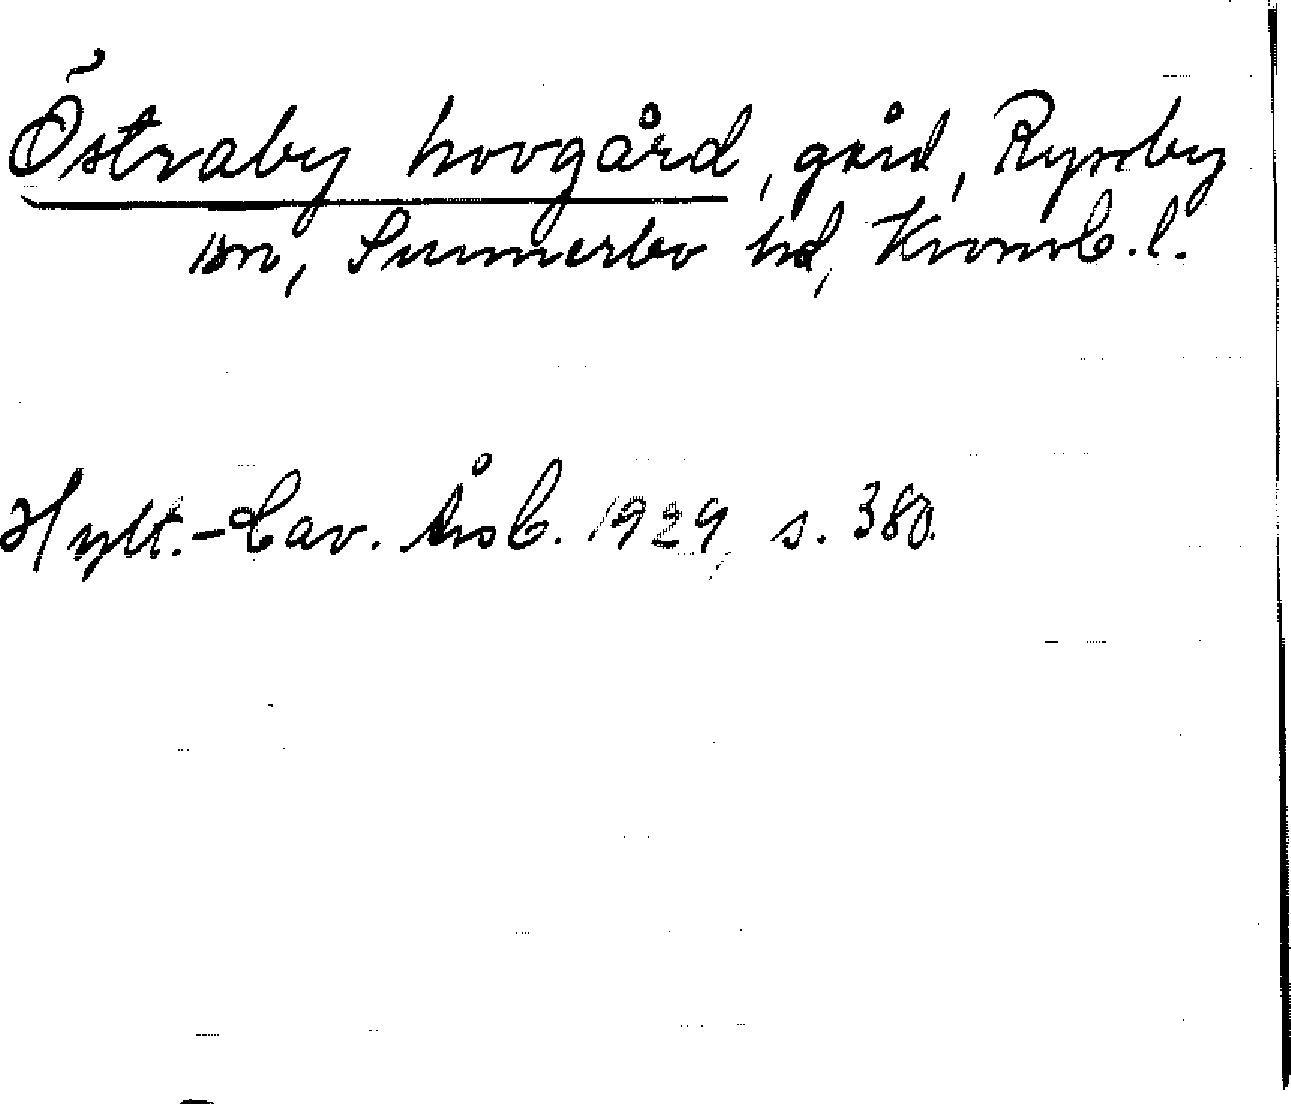 Östraby hovgård, gård, Ryssby
sn, Sunnerbo hd, Kronob. l.
Hylt.-Cav. Årsb. 1929, s. 380.